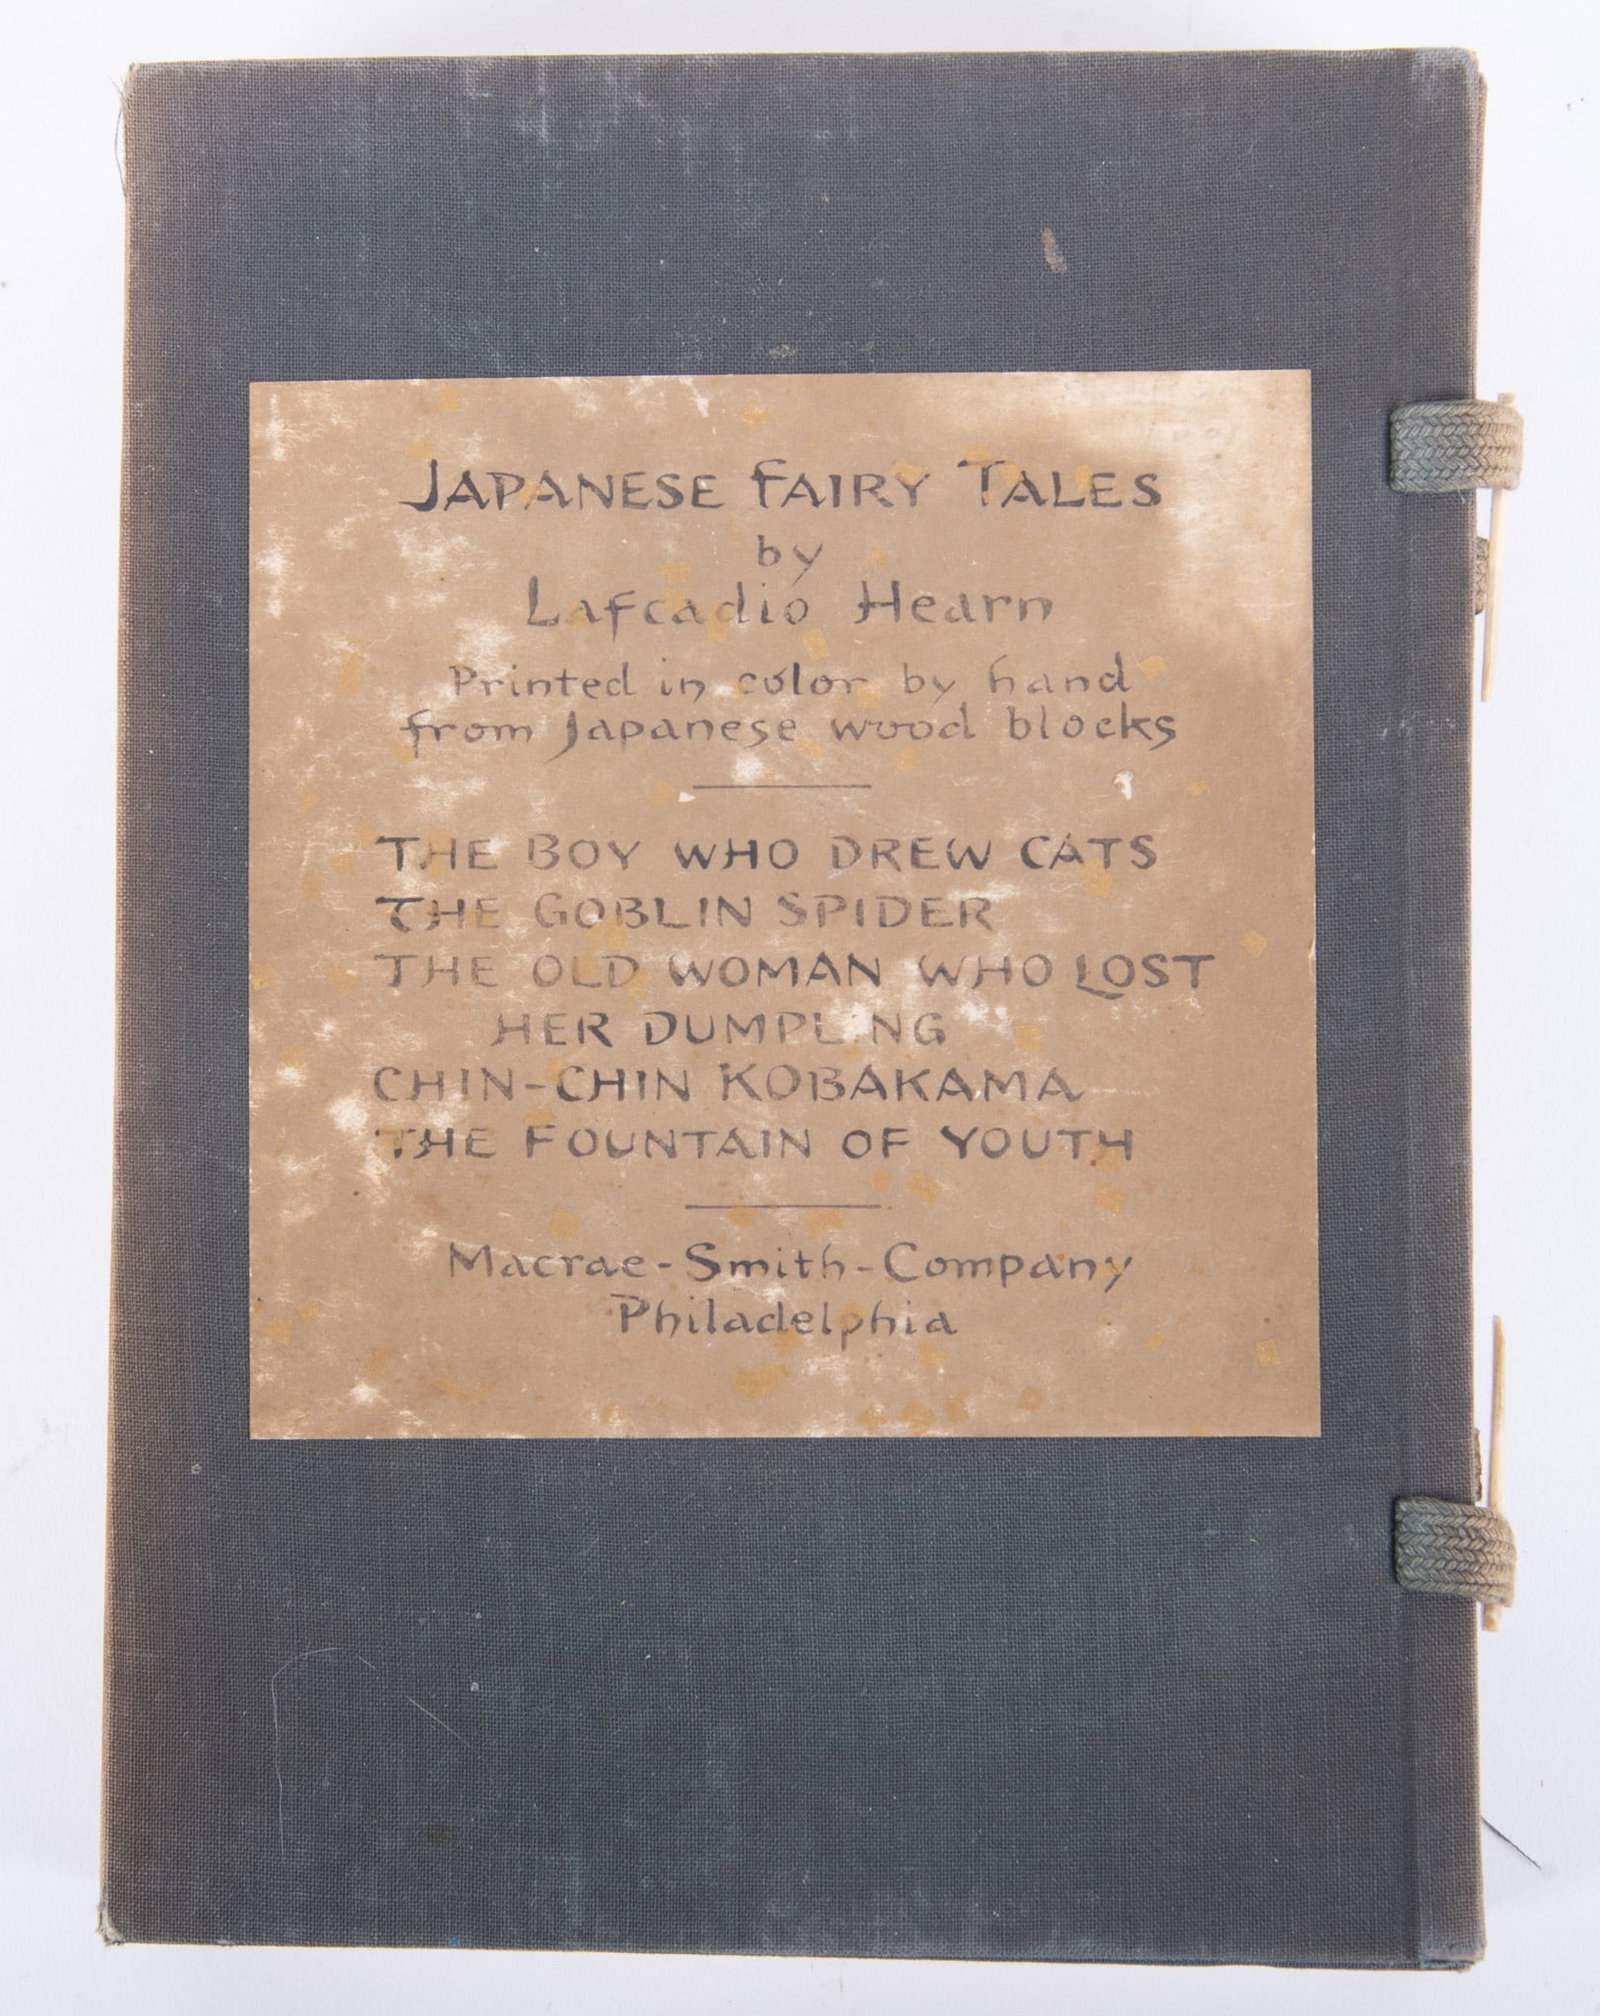 JAPANESE FAIRY TALES
by
Lafcadio Hearn
Printed in color by hand
from Japanese wood blocks
THE BOY WHO DREW CATS
THE GOBLIN SPIDER
THE OLD WOMAN WHO LOST
HER DUMPLING
CHIN-CHIN KOBAKAMA
THE FOUNTAIN OF YOUTH
Macrae-Smith-Company
Philadelphia